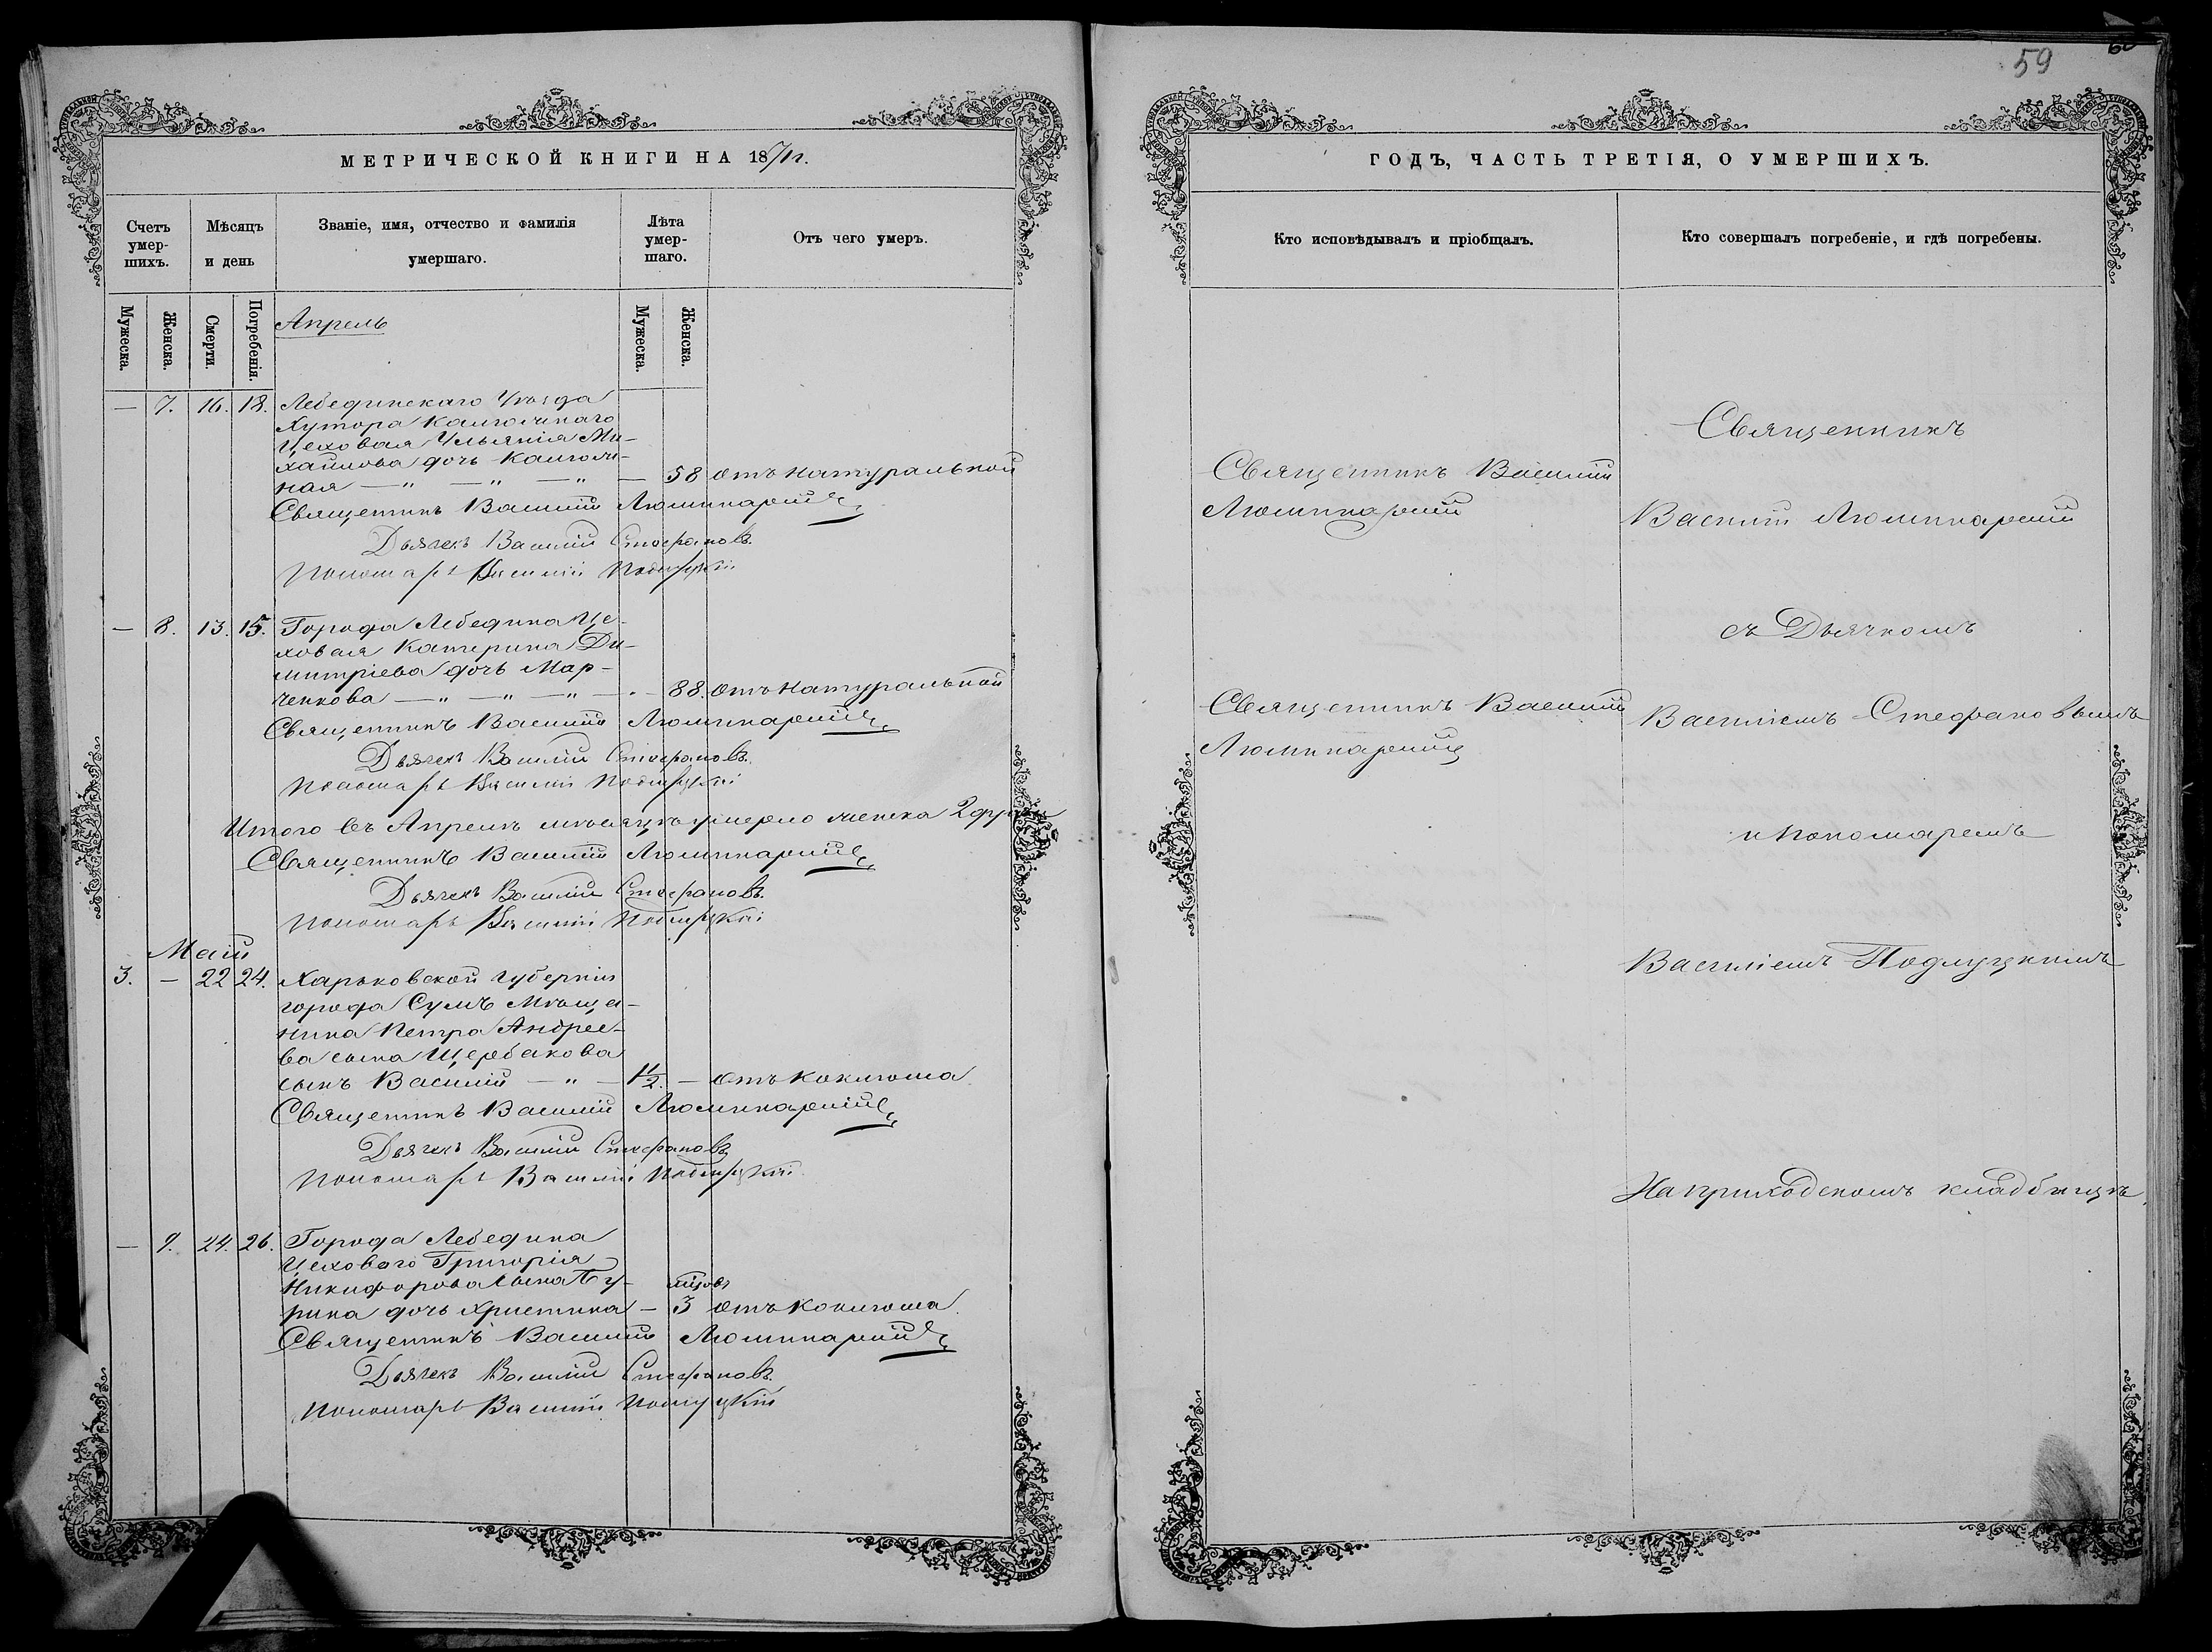 МЕТРИЧЕСКОЙ КНИГИ НА 1871 г.
Счетъ умер-шихъ.
Мѣсяцъ и день
Званіе, имя, отчество и фамилія умершаго.
Лѣта умер-шаго.
Отъ чего умеръ.
Мужеска.
Женска.
Смерти.
Погребенія.
Мужеска.
Женска.
Апрель
— 7. 16. 18. Лебединскаго Уѣзда
Хутора
Цеховая Ульянія Ми-
хайлова дочь
ная — " — " — " — 58 отъ натуральной
Священникъ Василий
Дьячекъ Василій Стефановъ.
Пономарь Василий Подлуцкій
— 8. 13. 15. Города Лебедина Це-
ховая Катерина Ди-
митріева дочь Мар-
ченкова — " — " — " — 88. отъ натуральной
Священникъ Василий
Дьячекъ Василій Стефановъ.
Пономарь Василий Подлуцкій
Итого въ Апрелѣ мѣсяцѣ умерло женска 2 души
Священникъ Василий
Дьячекъ Василій Стефановъ.
Пономарь Василий Подлуцкій
Маій
3. — 22 24. Харьковской Губерніи
города Сумъ Мѣща-
нина Петра Андрее-
ва сына Щербакова
сынъ Василий — " — 1½. — отъ коклюша
Священникъ Василий
Дьячекъ Василій Стефановъ
Пономарь Василий Подлуцкій
— 9. 24. 26. Города Лебедина
Цеховаго Григорія
Никифорова сына Бу-
рина дочь Христина — 3 отъ коклюша.
Священникъ Василий
Дьячекъ Василій Стефановъ.
Пономарь Василий
59
ГОДЪ, ЧАСТЬ ТРЕТІЯ, О УМЕРШИХЪ.
Кто исповѣдывалъ и пріобщалъ.
Кто совершалъ погребеніе, и гдѣ погребены.
Священникъ Василий
Священникъ Василий
Священникъ
Василий
съ Дьячкомъ
Василіемъ Стефановымъ
и Пономаремъ
Василіемъ Подлуцкимъ
На приходскомъ кладбищѣ